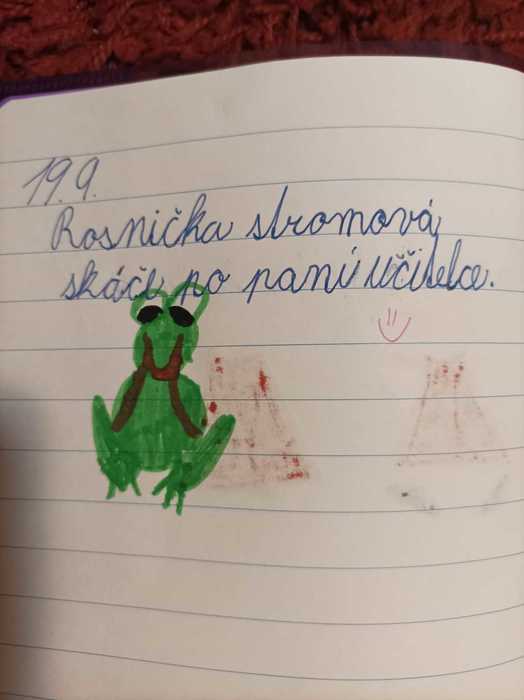 19.9.
Rosnička stromová
skáče po paní učitelce.